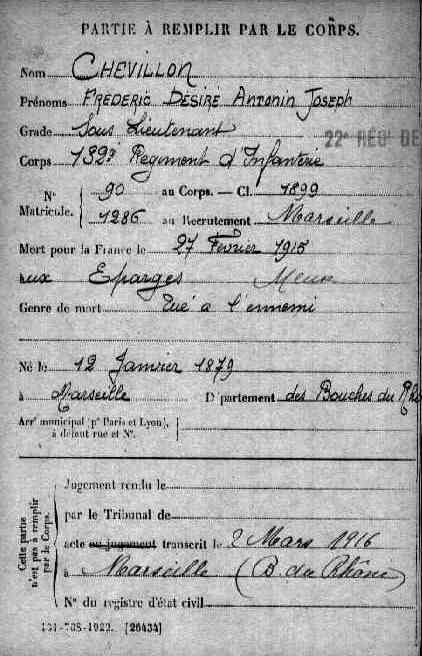 PARTIE À REMPLIR PAR LE CORPS.
Nom CHEVILLON
Prénoms FREDERIC DESIRÉ Antonin Joseph
Grade Sous Lieutenant
22e RÉGt DE
Corps 132e Régiment d'Infanterie
N° Matricule. 90 au Corps. — Cl. 1899
1286 au Recrutement Marseille
Mort pour la France le 27 Février 1915
aux Eparges Meuse
Genre de mort Tué à l'ennemi
Né le 12 Janvier 1879
à Marseille Département des Bouches du Rhô
Arrt municipal (pr Paris et Lyon), à défaut rue et N°.
Cette partie n'est pas à remplir par le Corps.
Jugement rendu le
par le Tribunal de
acte ou jugement transcrit le 2 Mars 1916
à Marseille (B du Rhône)
N° du registre d'état civil
-708-1922. [26434]